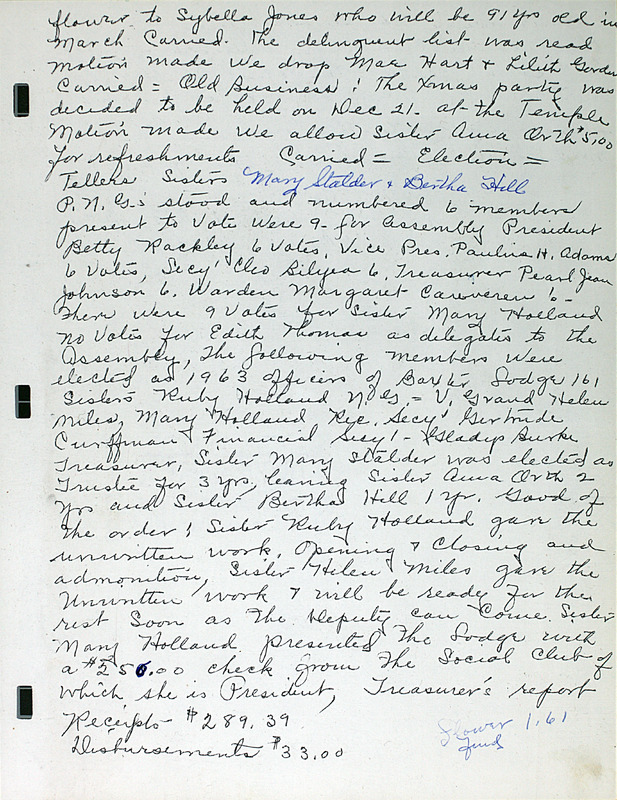 flower to Sybella Jones who will be 91 yrs old in
March Carried. The delinquent list was read
motion made we drop Mae Hart & Lilith
Carried = Old Business! The Xmas party was
decided to be held on Dec 21. at the Temple
Motion made we allow Sister Anna Orth $5.00
for refreshments Carried = Election =
Tellers Sisters Mary Stalder & Bertha Hill
P. N. G.'s stood and numbered 6 members
present to Vote were 9 - for Assembly President
Betty Rackley 6 Votes, Vice Pres. Pauline H. Adams
6 Votes, Secy' Cleo Bilyea 6, Treasurer Pearl Jean
Johnson 6. Warden Margaret 6 -
There were 9 Votes for Sister Mary Holland
no Votes for Edith Thomas as delegates to the
Assembly, The following members were
elected as 1963 officers of Baxter Lodge 161
Sisters Ruby Holland N. G. = V. Grand Helen
Miles, Mary Holland Rec. Secy' Gertrude
Curffman Financial Secy! - Gladys Burke
Treasurer, Sister Mary Stalder was elected as
Trustee for 3 yrs, leaving Sister Anna Orth 2
yrs and Sister Bertha Hill 1 yr. Good of
the order! Sister Ruby Holland gave the
unwritten work, Opening & Closing and
admonition, Sister Helen Miles gave the
Unwritten work & will be ready for the
rest soon as the Deputy can come. Sister
Mary Holland presented the Lodge with
a $250.00 check from The Social Club of
which she is President, Treasurer's report
Receipts $289.39
Disbursements $33.00
Flower 1.61
fund